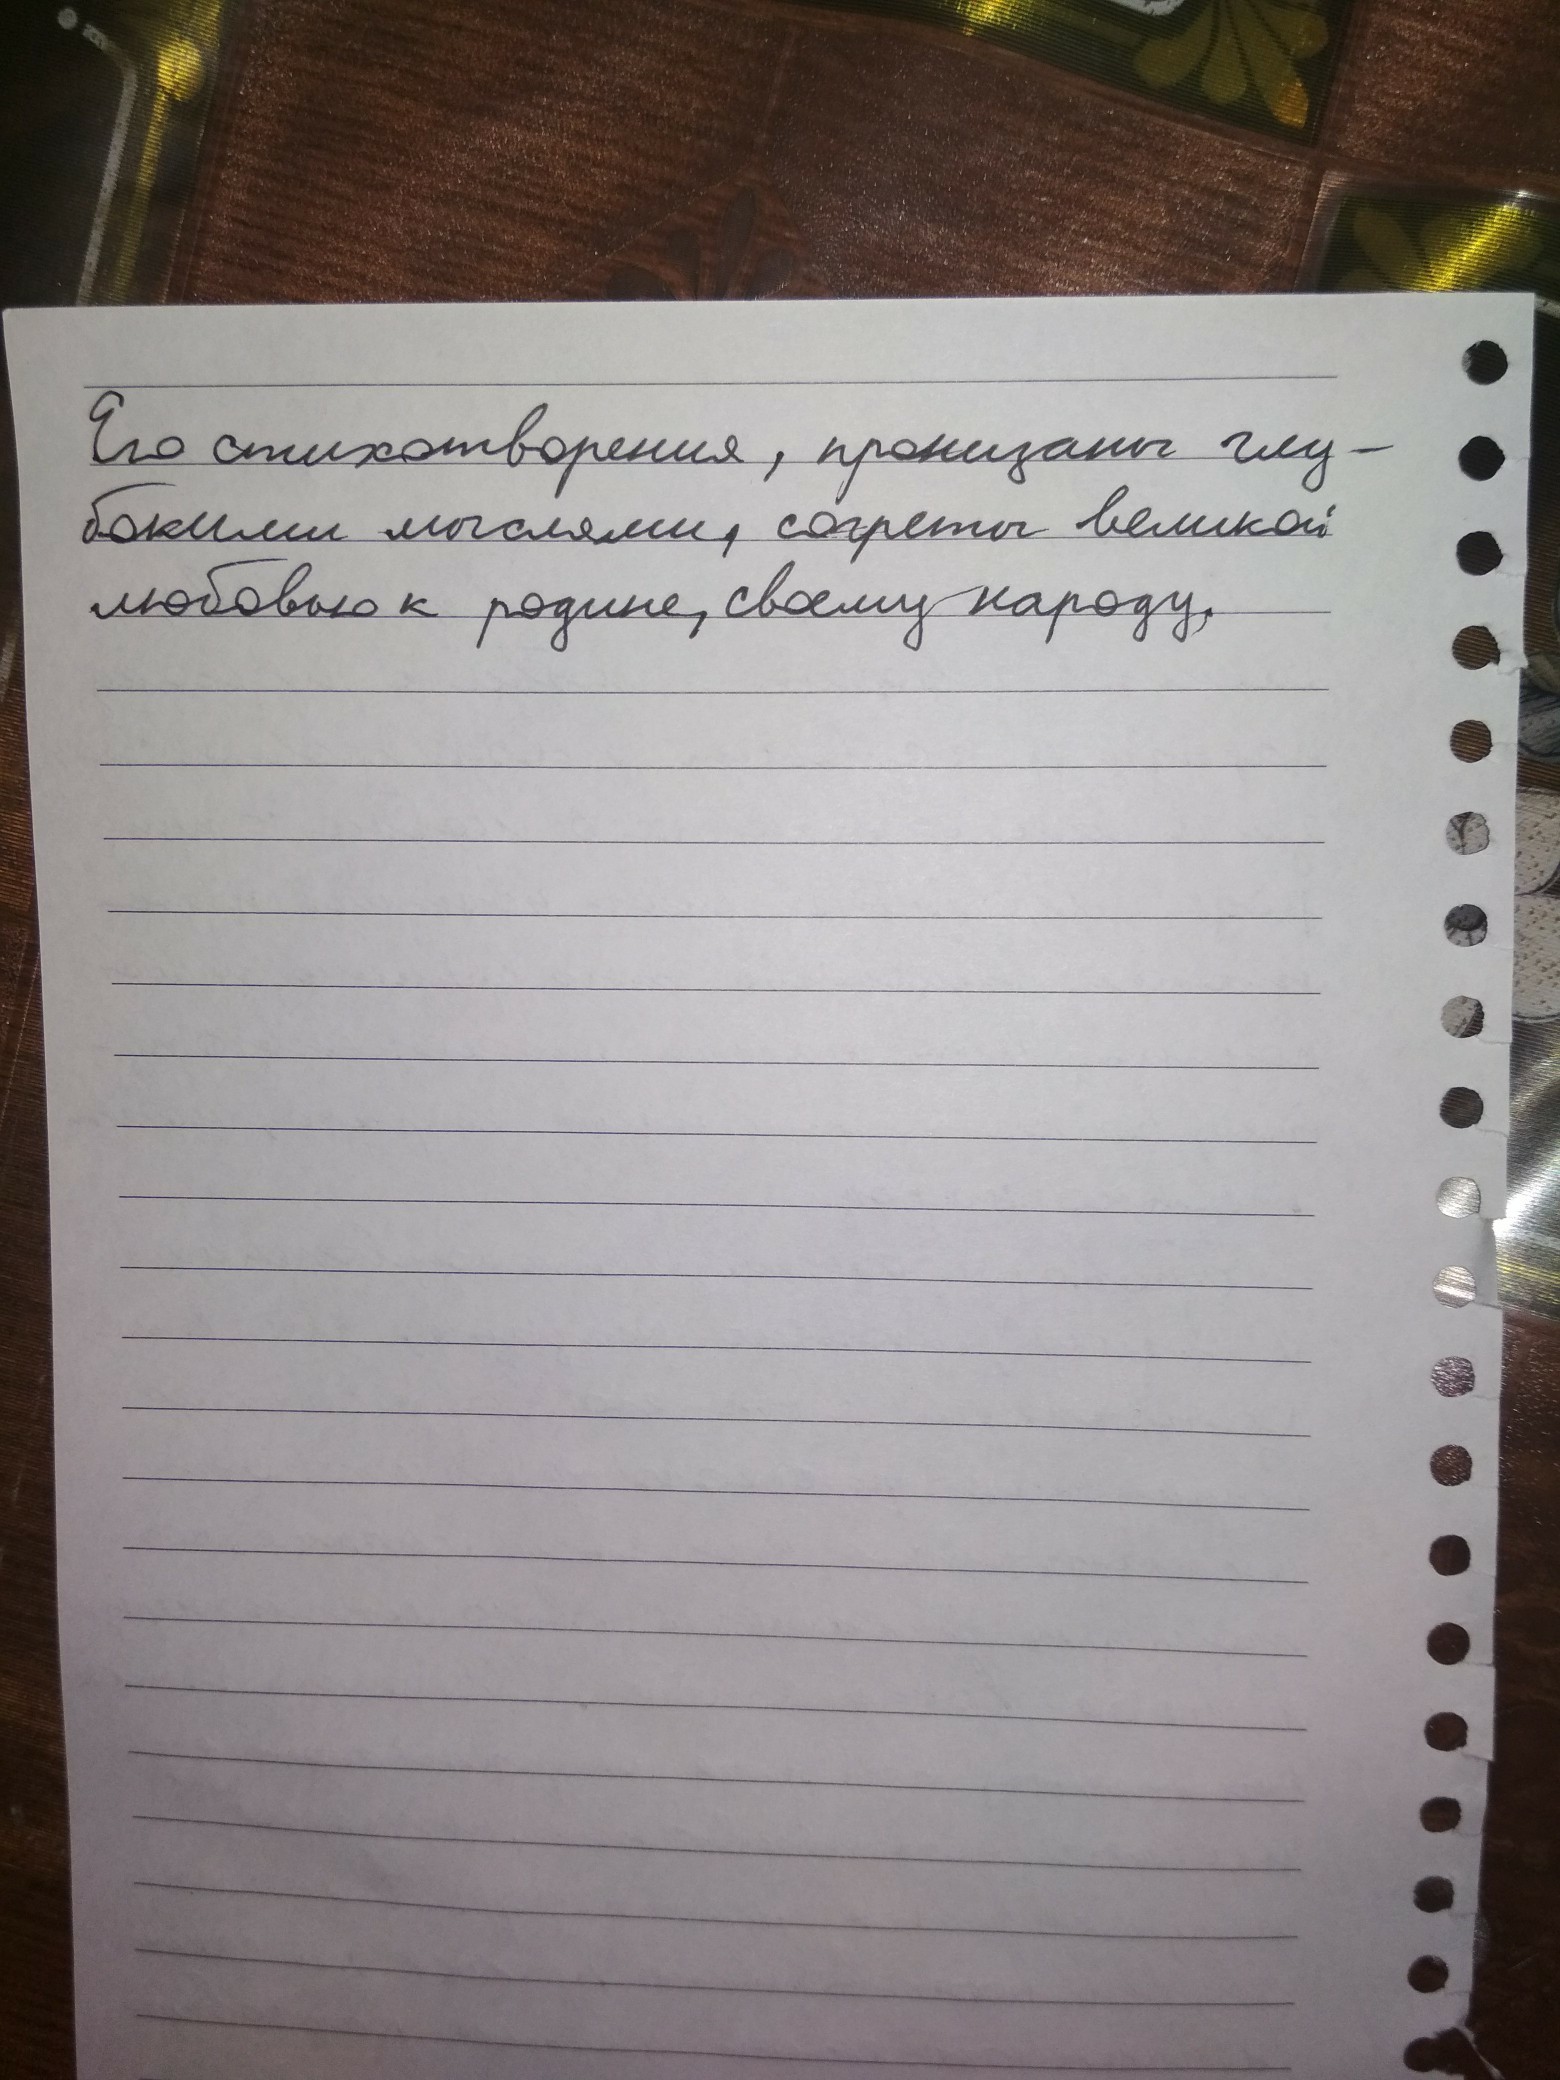 Его стихотворения, пронизаны глу-
бокими мыслями, согреты великой
любовью к родине, своему народу.